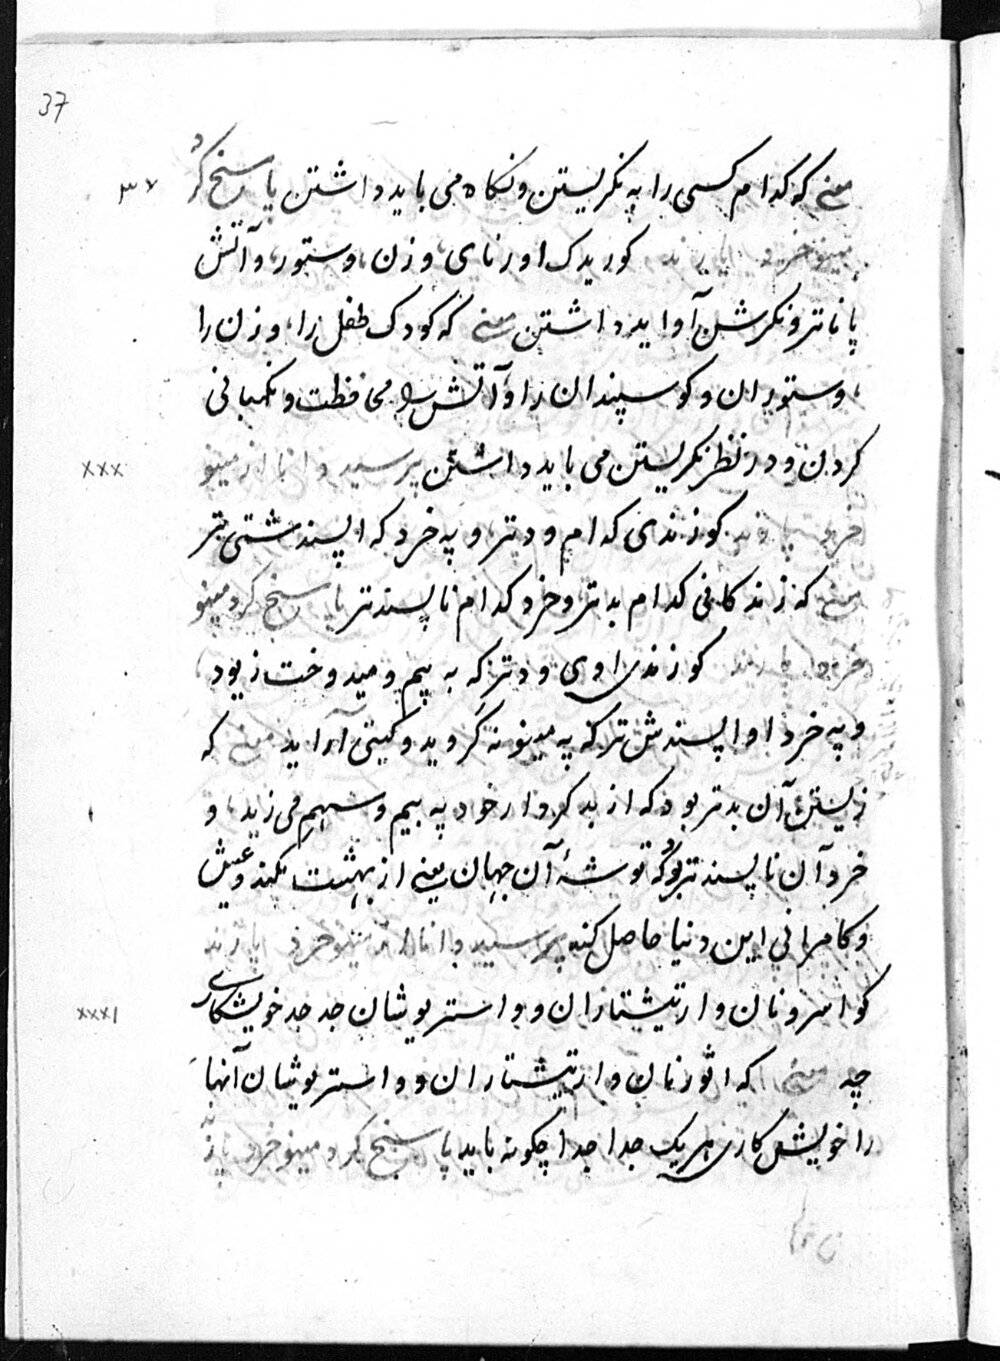 37
معنی که کدام کسی را په نگریستن و نگاه می باید داشتن پاسخ کرد ۳۷
مینوخرد پازند کوریدک اورنای و زن، وستور، و آتش
پاناتر و نگرشن آواید داشتن معنی که کودک طفل را، و زن را
، وستوران و کوسپندان را و آتش را محافظت و نگهبانی
کردن و در نظر نگریستن می باید داشتن پرسید دانا از مینو xxx
خرد پازند کو زندی کدام ودتر و په خرد که اپسندشنی تر
معنی که زندگانی کدام بدتر و خرد کدام ناپسندتر پاسخ کرد مینو
خرد پازند کو زندی اوی ودتر که به بیم و میدوخت زیود
و په خرد اوا اپسندش تر که په مینو نه گروید و گیتی آراید معنی که
زیستن آن بدتر بود که از بد کردار خود په بیم و سهم می زید، و
خرد آن ناپسندتر بود که توشهٔ آن جهان یعنی از بهشت نکند و عیش
و کامرانی این دنیا حاصل کند پرسید دانا از مینوخرد پازند
کو اسرونان و ارتیشتاران و واستریوشان جد جد خویشکاری xxxi
چه معنی که اثورنان و ارتیشتاران و واستریوشان آنها
را خویش کاری هر یک جدا جدا چگونه باید پاسخ کرد مینوخرد پاز